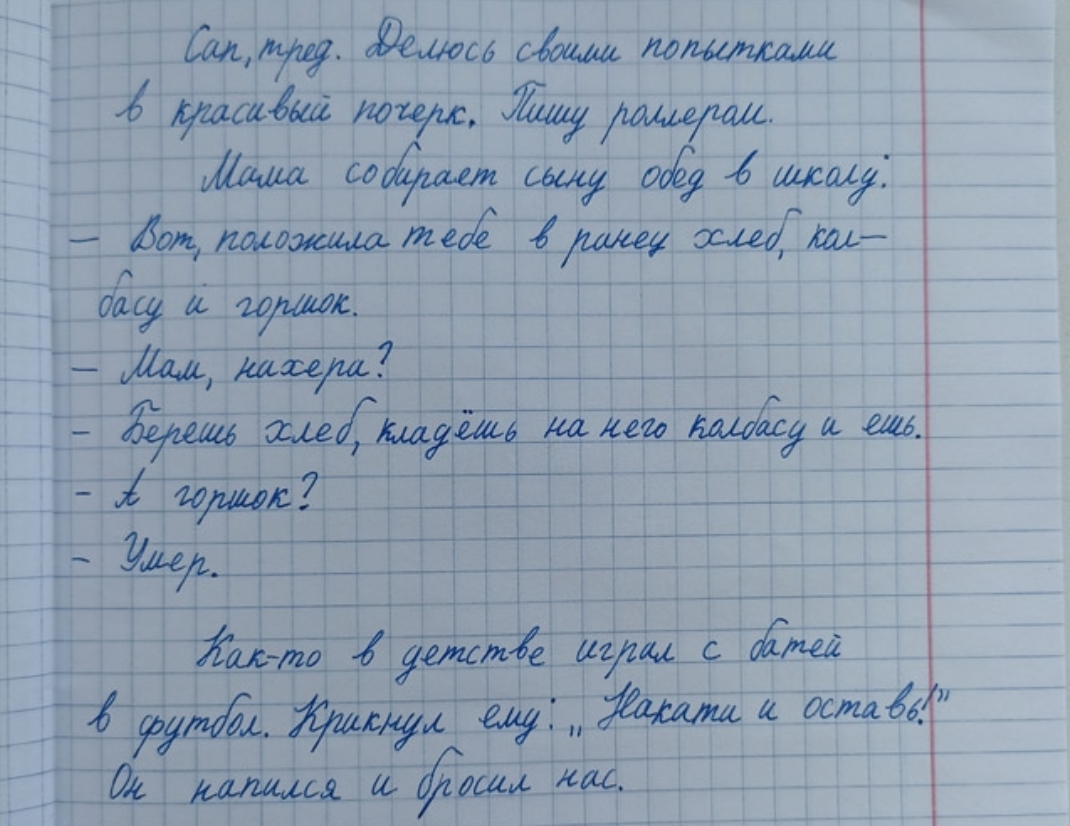 Сап, тред. Делюсь своими попытками
в красивый почерк. Пишу роллером.
Мама собирает сыну обед в школу:
— Вот, положила тебе в ранец хлеб, кол-
басу и горшок.
— Мам, нахера?
- Берешь хлеб, кладёшь на него колбасу и ешь.
- А горшок?
- Умер.
Как-то в детстве играл с батей
в футбол. Крикнул ему: „Накати и оставь!”
Он напился и бросил нас.